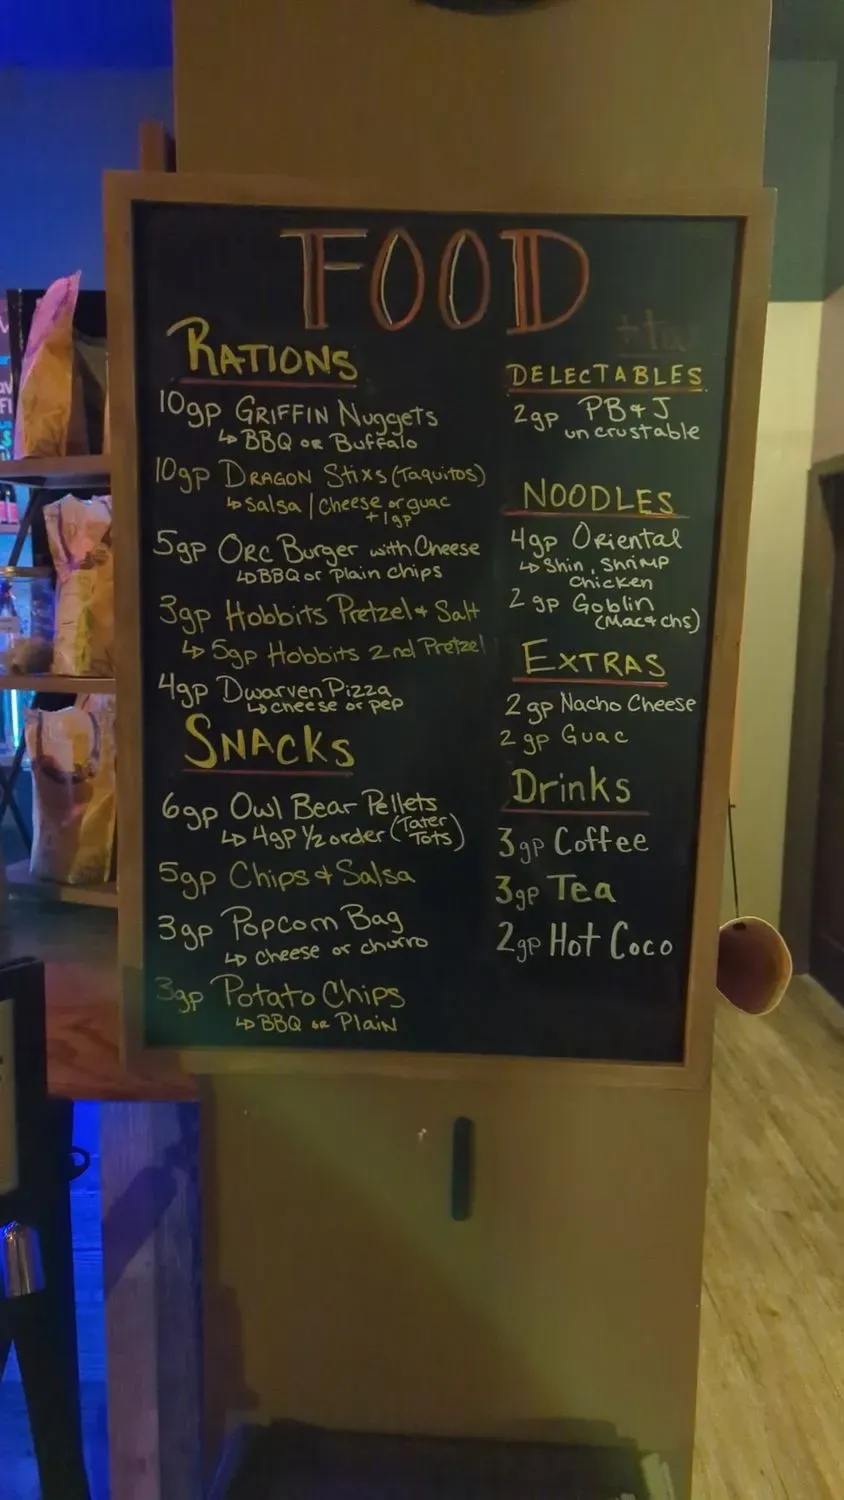 FOOD
RATIONS
10gp GRIFFIN Nuggets
↳ BBQ or Buffalo
10gp DRAGON Stixs (Taquitos)
↳ salsa / cheese or guac
+1gp
5gp ORC Burger with Cheese
↳ BBQ or Plain chips
3gp Hobbits Pretzel + Salt
↳ 5gp Hobbits 2nd Pretzel
4gp Dwarven Pizza
↳ cheese or pep
SNACKS
6gp Owl Bear Pellets
↳ 4gp 1/2 order (Tater
Tots)
5gp Chips & Salsa
3gp Popcorn Bag
↳ cheese or churro
3gp Potato Chips
↳ BBQ or Plain
+ tax
DELECTABLES
2gp PB & J
uncrustable
NOODLES
4gp Oriental
↳ Shin, Shrimp
Chicken
2gp Goblin
(Mac & chs)
EXTRAS
2gp Nacho Cheese
2gp Guac
Drinks
3gp Coffee
3gp Tea
2gp Hot Coco